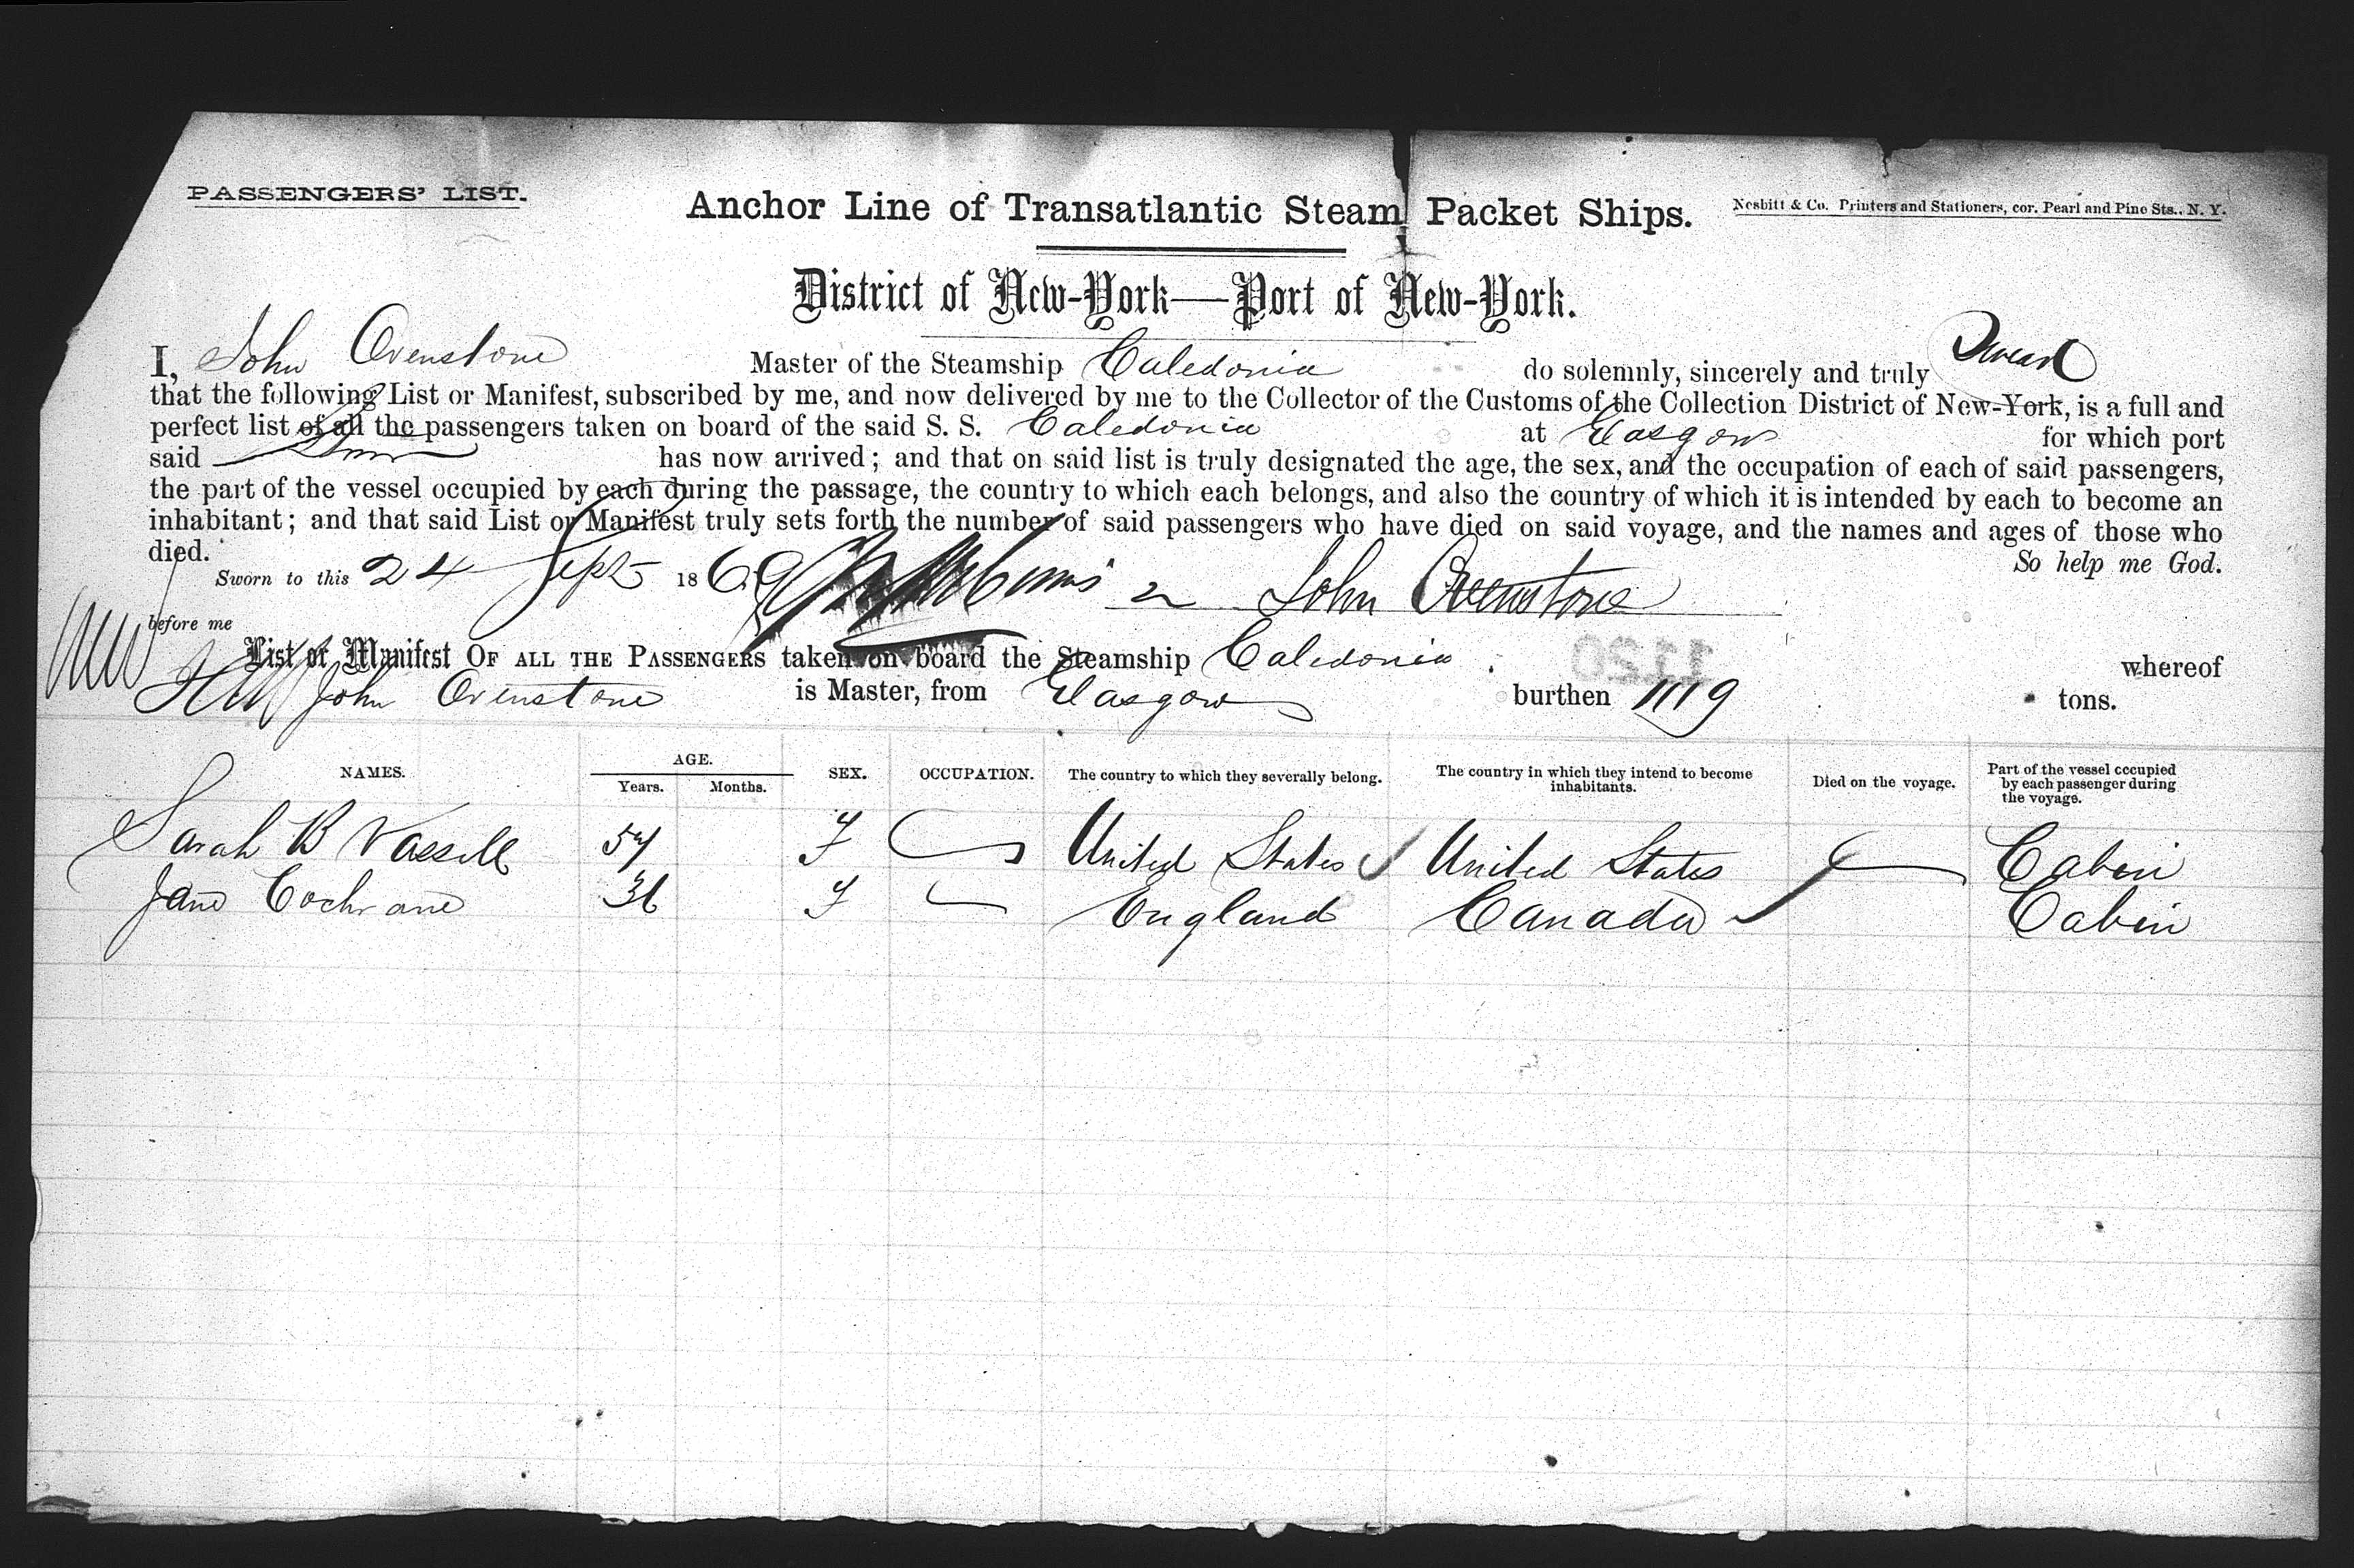 PASSENGERS' LIST.
Anchor Line of Transatlantic Steam Packet Ships.
Nesbitt & Co. Printers and Stationers, cor. Pearl and Pine Sts., N. Y.
District of New-York—Port of New-York.
I, John Ovenstone Master of the Steamship Caledonia do solemnly, sincerely and truly Swear
that the following List or Manifest, subscribed by me, and now delivered by me to the Collector of the Customs of the Collection District of New-York, is a full and
perfect list of all the passengers taken on board of the said S. S. Caledonia at Glasgow for which port
said has now arrived; and that on said list is truly designated the age, the sex, and the occupation of each of said passengers,
the part of the vessel occupied by each during the passage, the country to which each belongs, and also the country of which it is intended by each to become an
inhabitant; and that said List or Manifest truly sets forth the number of said passengers who have died on said voyage, and the names and ages of those who
died. So help me God.
Sworn to this 24 Sept 1869 John Ovenstone
before me
List or Manifest OF ALL THE PASSENGERS taken on board the Steamship Caledonia whereof
John Ovenstone is Master, from Glasgow burthen 1119 tons.
1120
NAMES. AGE. Years. Months. SEX. OCCUPATION. The country to which they severally belong. The country in which they intend to become inhabitants. Died on the voyage. Part of the vessel occupied by each passenger during the voyage.
Sarah B F United States United States Cabin
Jane Cochrane 36 F England Canada Cabin